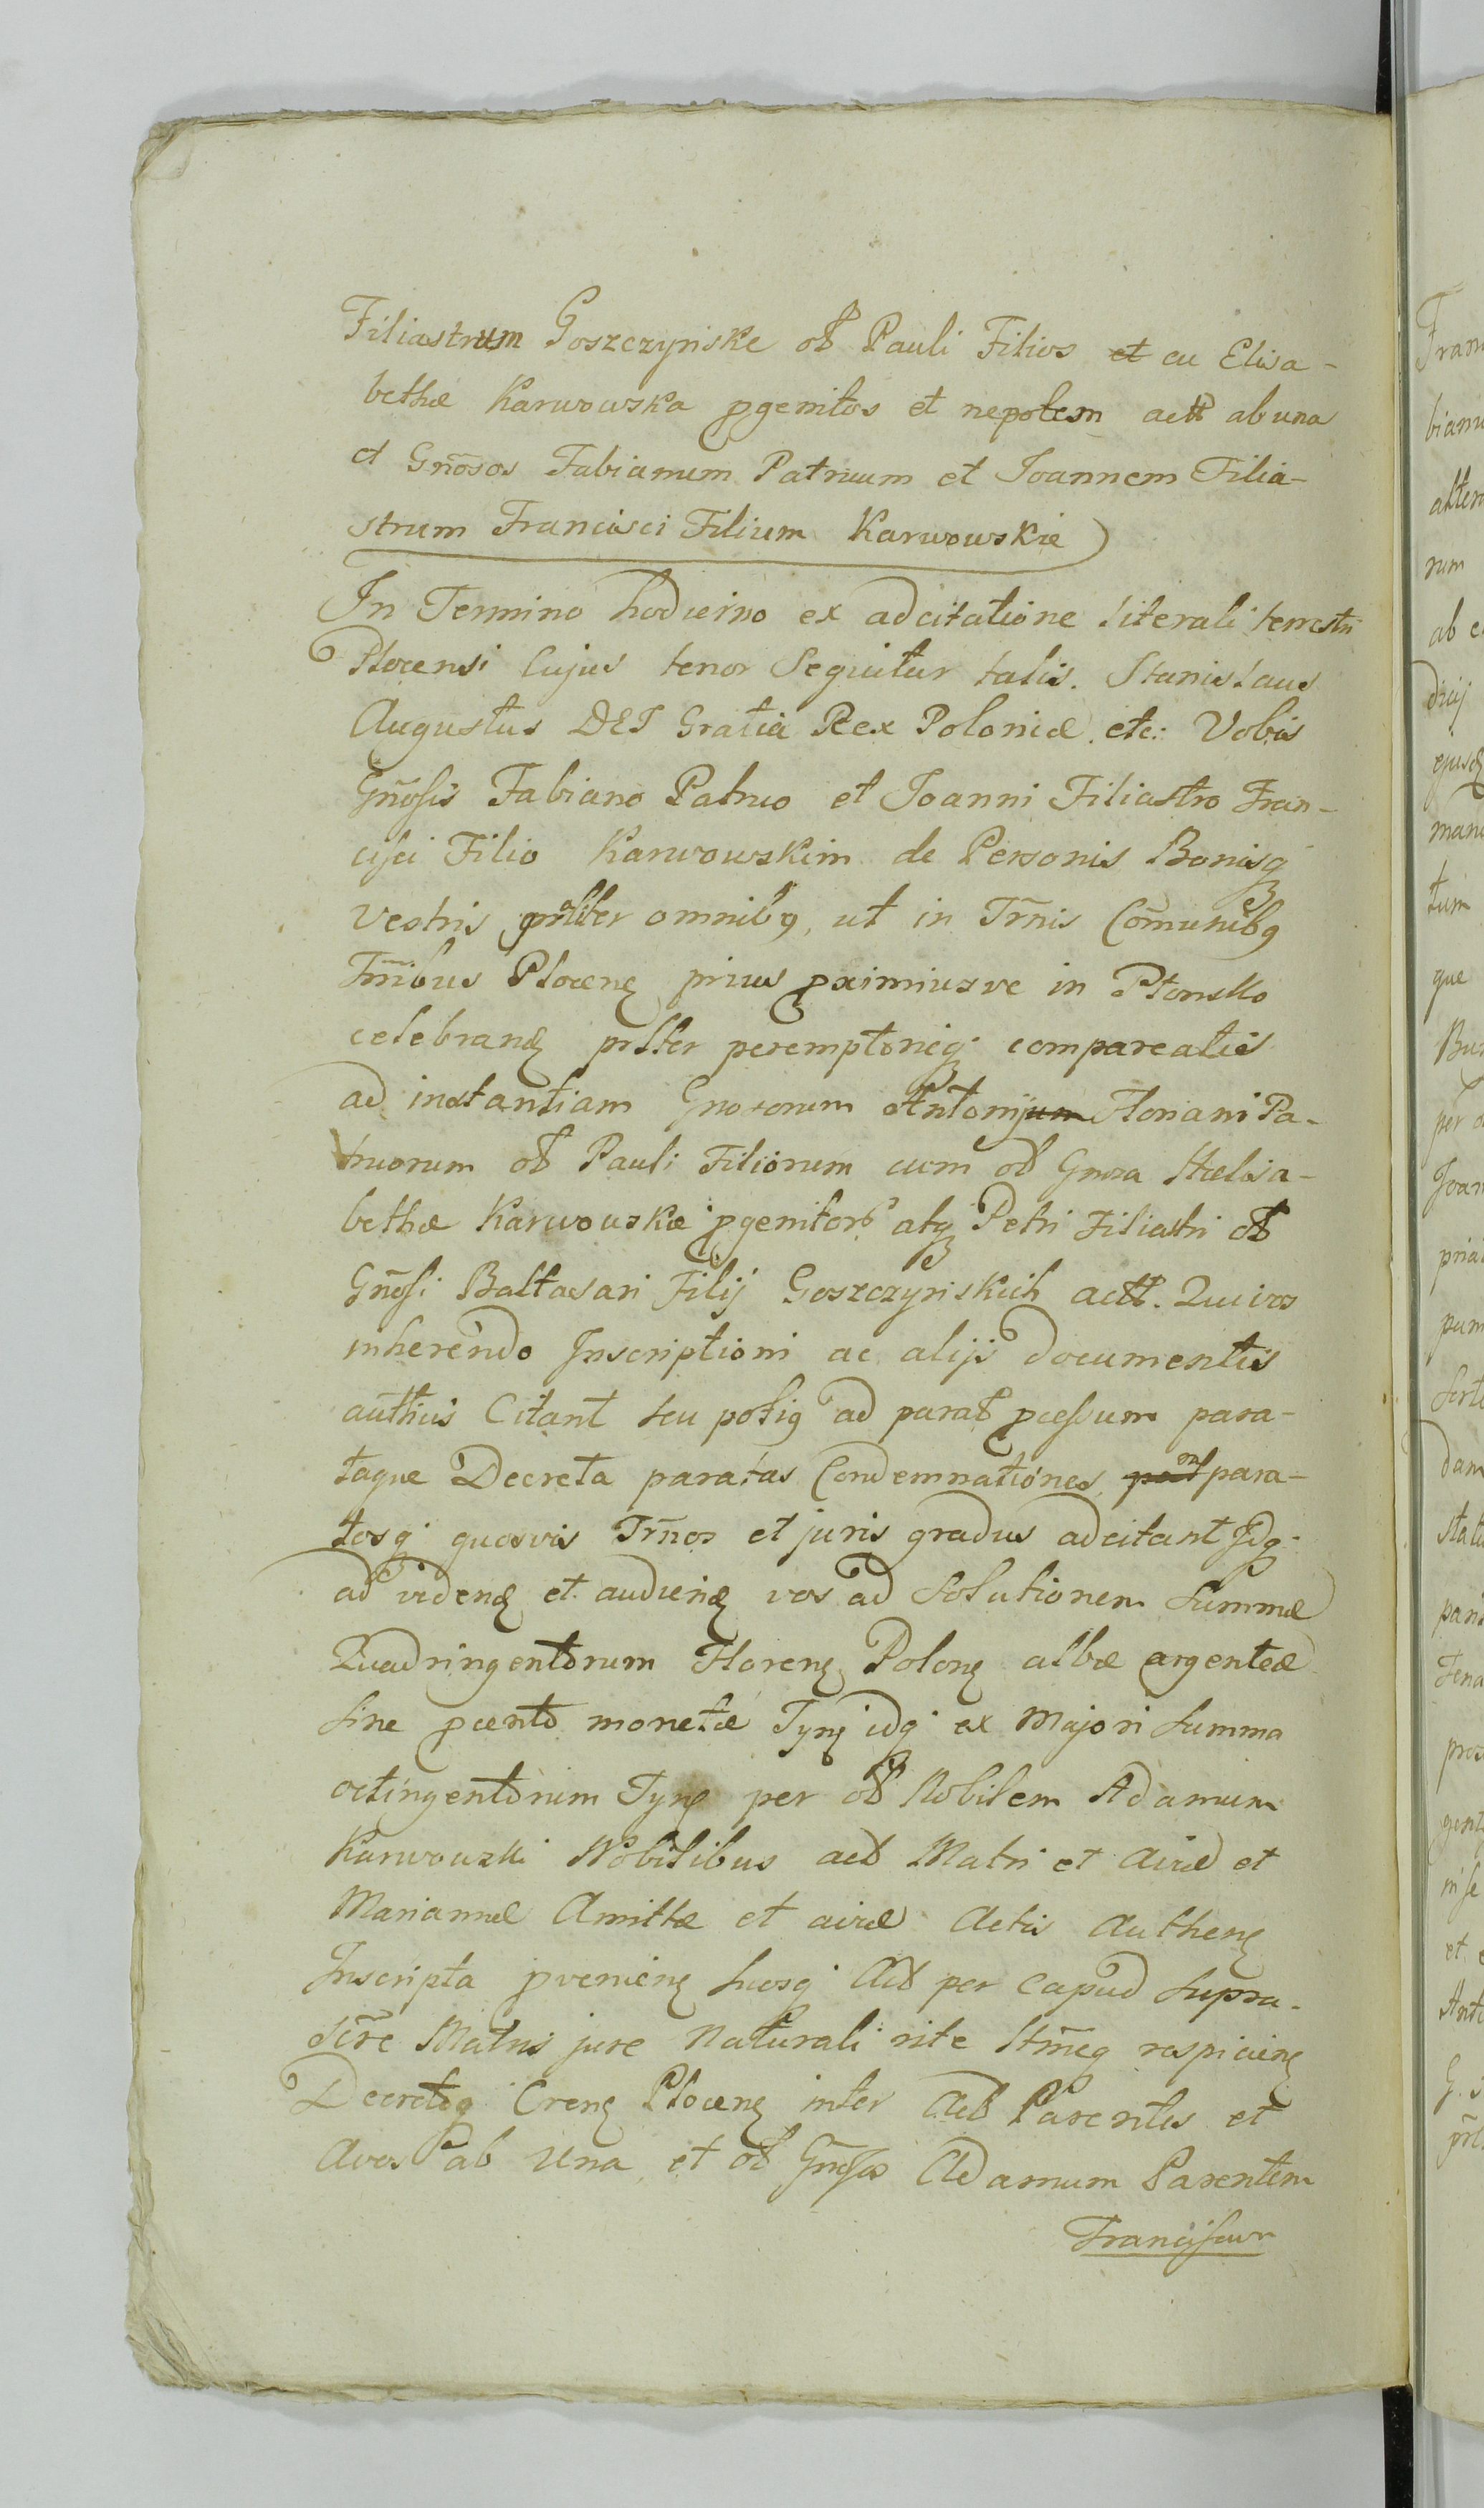 Filiastrum Goszczynske oƀ Pauli Filios et cu Elisa-
bethæ Karwowska pgenitos et nepotem actt ab una
et Gñosos Fabianum Patruum et Joannem Filia-
strum Francisci Filium Karwowskie
In Termino hodierno ex adcitatione literali terrestri
Plocensi Cujus tenor Sequitur talis. Stanislaus
Augustus DEI Gratia Rex Poloniæ etc: Vobis
Gñosis Fabiano Patruo et Joanni Filiastro Fran-
cisci Filio Karwowskim de Personis Bonisq
vestris omnibq, ut in Trñis Cõmunibq
Trñibus Plocenȩ prius pximiusve in Płonsko
celebrandȩ prltter peremptorieq compareatis
ad instantiam Gnosorum Antonijum Floriani Pa-
truorum oƀ Pauli Filiorum cum oƀ Gnosa Haelisa-
bethæ Karwouskæ pgenitor atq Petri Filiastri oƀ
Gñosi Baltasari Filij Goszczynskich actt. Qui vos
inherendo Inscriptioni ac alijs documentis
authcis Citant seu potiq ad parat pcessum para-
taque Decreta paratas Condemnationes, para-
tosq quosvis Trñnos et juris gradus adcitant Idq
ad videndȩ et audiendȩ vos ad Solutionem Summæ
Quadringentorum Florenȩ Polonȩ albæ argenteæ
sine pcento monetæ Tynȩ idq ex Majori Summa
octingentorum Tynȩ per oƀ Nobilem Adamum
Karwouski Nobilibus act Matri et aviæ et
Mariannæ Amittæ et aviæ Actis Authenȩ
Inscripta pvenienȩ huosq Act per Capud supra-
Scr̃e Matris jure Naturali rite respicienȩ
Decretoq Crenȩ Plocenȩ inter Act Parentes et
Avos ab Una, et oƀ Gñosos Adamum Parentem
Franciscum